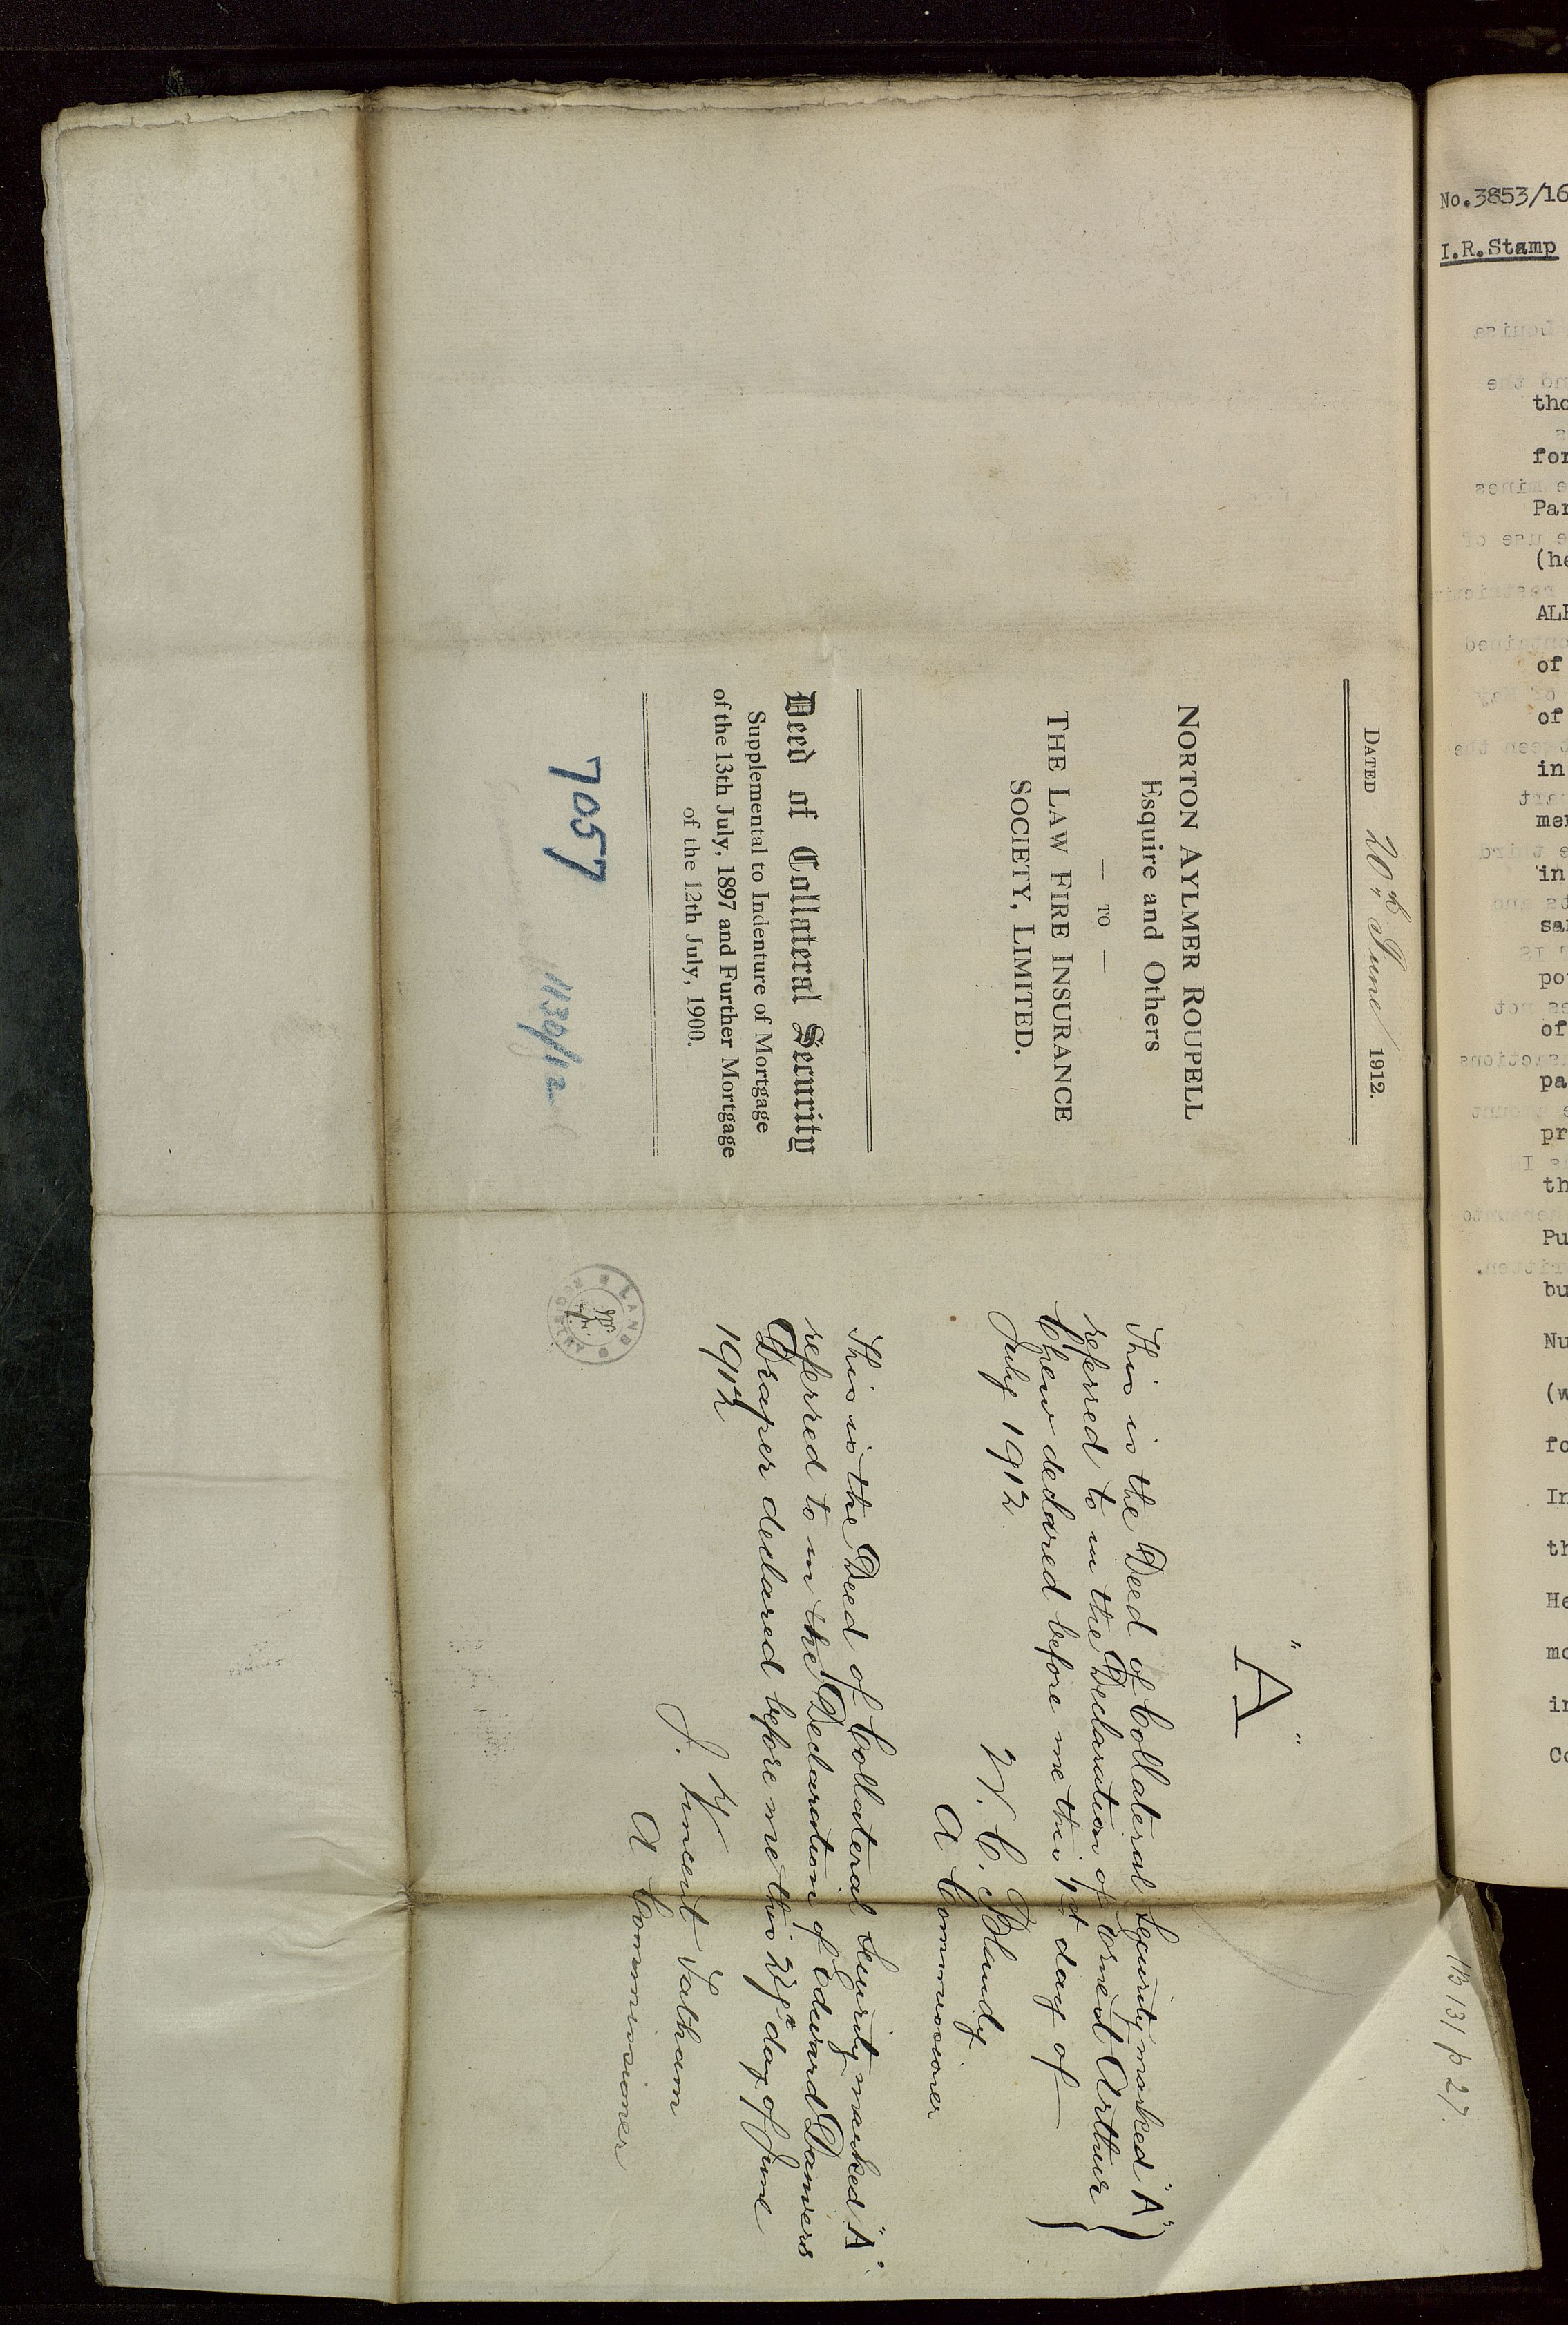 DATED 20th June 1912.
NORTON AYLMER ROUPELL
Esquire and Others
— TO —
THE LAW FIRE INSURANCE
SOCIETY, LIMITED.
Deed of Collateral Security
Supplemental to Indenture of Mortgage
of the 13th July, 1897 and Further Mortgage
of the 12th July, 1900.
7057
1130/12
"A"
This is the Deed of Collateral Security marked "A"
referred to in the Declaration of Ernest Arthur
Chew declared before me this 1st day of
July 1912.
W. C. Blandy
A Commissioner
This is the Deed of Collateral Security marked "A"
referred to in the Declaration of Edward Danvers
Draper declared before me this 28th day of June
1912
J. Vincent Latham
A Commissioner
LAND REGISTRY
1B 131 p 27.
No.3853/16
I.R.Stamp
tho
for
Par
(he
ALF
of
of
in
mer
in
sai
pow
of
pa
pr
th
Pu
bu
Nu
(w
fo
In
th
He
mo
in
Co